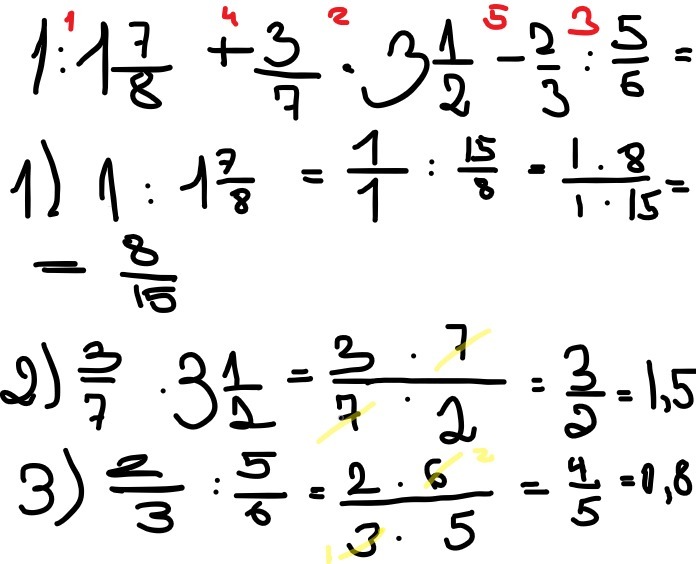 1 : 1 7/8 + 3/7 · 3 1/2 - 2/3 : 5/6 =
1 4 2 5 3
1) 1 : 1 7/8 = 1/1 : 15/8 = 1 · 8 / 1 · 15 =
= 8/15
2) 3/7 · 3 1/2 = 3 · 7 / 7 · 2 = 3/2 = 1,5
3) 2/3 : 5/6 = 2 · 6 2 / 1 3 · 5 = 4/5 = 0,8